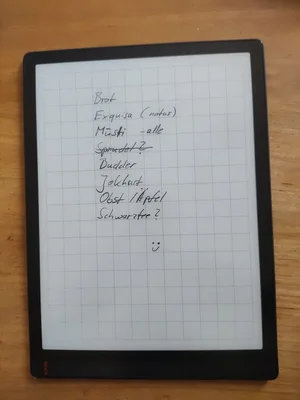 Brot
Exquisa (natur)
Müsli - alle
Sprudel?
Dudler
Joghurt
Obst / Äpfel
Schwarztee?